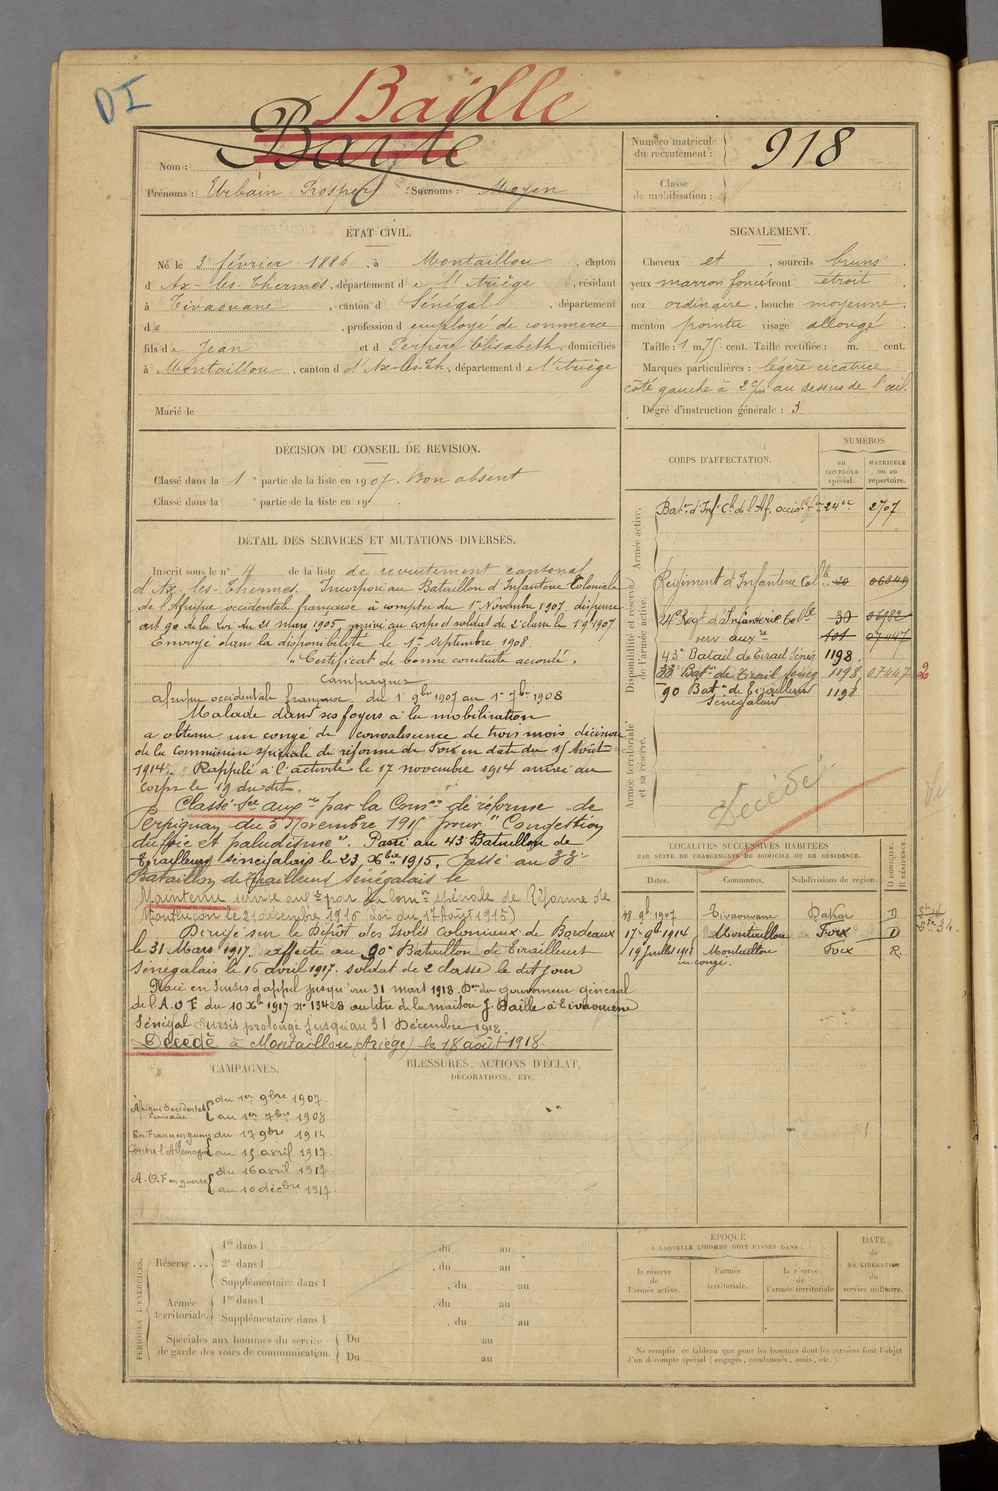 DI
Baille
Baille
Nom :
Prénoms : Urbain Prosper Surnoms : Moyen
Numéro matricule du recrutement : 918
Classe de mobilisation :
ÉTAT CIVIL.
Né le 3 février 1886, à Montaillou, canton
d'Ax-les-Thermes, département de l'Ariège, résidant
à Tivaouane, canton d Sénégal, département
de , profession d employé de commerce
fils de Jean et d Perpère Elisabeth, domiciliés
à Montaillou, canton d'Ax-les-Th, département de l'Ariège
Marié le
SIGNALEMENT.
Cheveux et , sourcils bruns
yeux marron foncé front étroit
nez ordinaire, bouche moyenne
menton pointu visage allongé
Taille : 1 m. 75 cent. Taille rectifiée : m. cent.
Marques particulières : légère cicatrice
côté gauche à 2 c/m au dessus de l'œil.
Degré d'instruction générale : 3
DÉCISION DU CONSEIL DE REVISION.
Classé dans la 1e partie de la liste en 1907. Bon absent
Classé dans la e partie de la liste en 19
DÉTAIL DES SERVICES ET MUTATIONS DIVERSES.
Inscrit sous le n° 4 de la liste de recrutement cantonal
d'Ax-les-Thermes. Incorporé au Bataillon d'Infanterie Coloniale
de l'Afrique occidentale française à compter du 1er Novembre 1907, dispense
art 90 de la Loi du 21 mars 1905, arrivé au corps et soldat de 2e classe le 1 9bre 1907
Envoyé dans la disponibilité le 1er septembre 1908.
"Certificat de bonne conduite accordé"
Campagnes
Afrique occidentale française du 1er 9bre 1907 au 1er 7bre 1908
Malade dans ses foyers à la mobilisation
a obtenu un congé de convalescence de trois mois décision
de la commission spéciale de réforme de Foix en date du 15 Août
1914. Rappelé à l'activité le 17 novembre 1914 arrivé au
corps le 19 du dit.
Classé Sce auxre par la Comon de réforme de
Perpignan du 5 Novembre 1915 pour "Congestion
du foie et paludisme". Passé au 43e Bataillon de
Tirailleurs sénégalais le 23 Xbre 1915. Passé au 33e
Bataillon de Tirailleurs Sénégalais le
Maintenu service auxre par la Comon spéciale de Réforme de
Montluçon le 21 décembre 1916 (Loi du 17 Août 1915)
Dirigé sur le Dépôt des Isolés Coloniaux de Bordeaux
le 31 Mars 1917. affecté au 90e Bataillon de Tirailleurs
Sénégalais le 16 avril 1917. soldat de 2e classe le dit jour
Placé en sursis d'appel jusqu'au 31 mars 1918. Don du gouverneur général
de l'A.O.F du 10 Xbre 1917 n° 13428 au titre de la maison J. Baille à Tivaouane
Sénégal Sursis prolongé jusqu'au 31 Décembre 1918.
Décédé à Montaillou (Ariège) le 18 août 1918.
CORPS D'AFFECTATION.
NUMÉROS
au CONTRÔLE spécial.
MATRICULE ou au répertoire.
Armée active.
Baton d'Infie Cle de l'Af. occidle fse 24e 2707
Disponibilité et réserve de l'armée active.
Régiment d'Infanterie Colle 30 06349
24e Regt d'Infanterie Colle 30 06982
serv auxre 101 07447
43e Batail de Tirail Sénég 1198
33e Baton de Tirail Sénég 1198 07447 2
90 Baton de Tirailleurs 1198
Sénégalais
Armée territoriale et sa réserve.
Décédé
LOCALITÉS SUCCESSIVES HABITÉES
PAR SUITE DE CHANGEMENTS DE DOMICILE OU DE RÉSIDENCE.
D DOMICILE. R RÉSIDENCE.
Dates. Communes. Subdivisions de région.
18 9bre 1907 Tivaouane Dakar D
17 9bre 1914 Montaillou Foix D
19 juillet 1918 Montaillou Foix R.
en congé.
CAMPAGNES.
Afrique Occidentale Française { du 1er 9bre 1907.
au 1er 7bre 1908
En France en guerre contre l'Allemagne { du 17 9bre 1914
au 15 avril 1917.
A-O.F en guerre { du 16 avril 1917.
au 10 décbre 1917.
BLESSURES, ACTIONS D'ÉCLAT,
DÉCORATIONS, ETC.
PÉRIODES D'EXERCICES.
Réserve . . . { 1re dans l , du au
2e dans l , du au
Supplémentaire dans l , du au
Armée territoriale. { 1re dans l , du au
Supplémentaire dans l , du au
Spéciales aux hommes du service de garde des voies de communication. { Du au
Du au
ÉPOQUE
À LAQUELLE L'HOMME DOIT PASSER DANS :
la réserve de l'armée active.
l'armée territoriale.
la réserve de l'armée territoriale
DATE de LA LIBÉRATION du service militaire.
Ne remplir ce tableau que pour les hommes dont les services font l'objet
d'un décompte spécial (engagés, condamnés, omis, etc.).